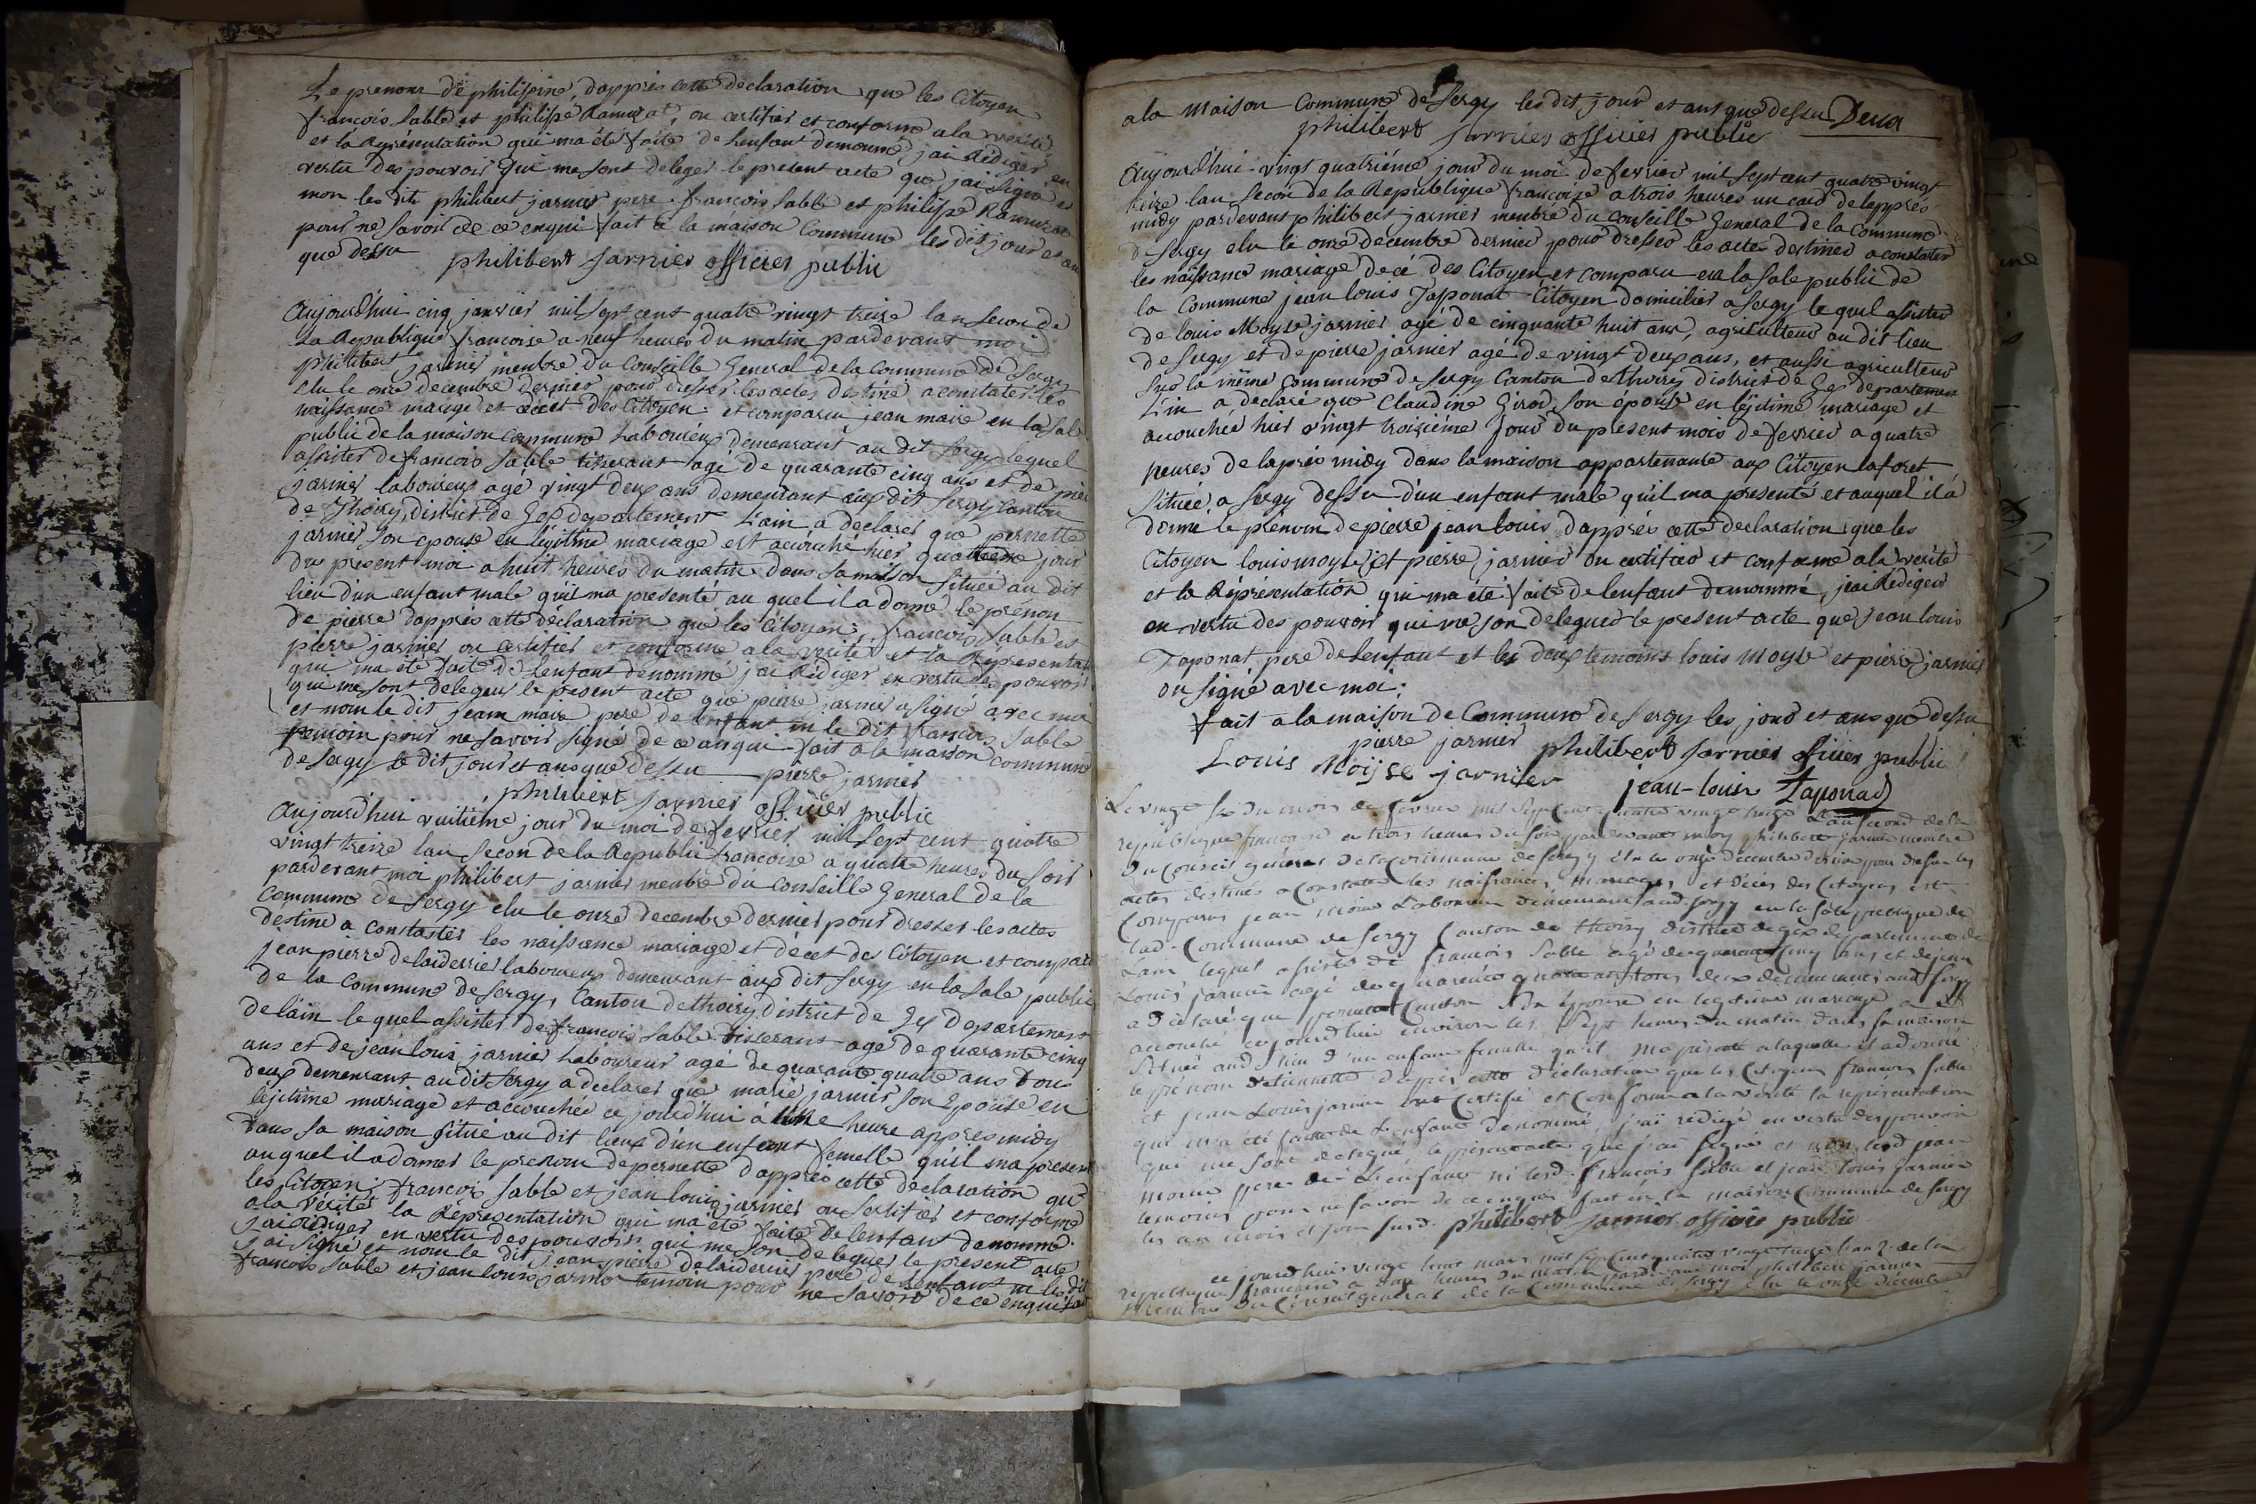 Le prenom de philipine, dapprés cette declaration que les Citoyen
francois Sable et philipe Ramuzat, on certifier et conforme a la verité
et la Représentation qui ma été faite de Lenfant denomme jai Rédiger en
vertu des pouvoir qui me sont deleger le present acte que jai Signé et
non les dits philibert jarnier pere francois Sable et philipe Ramuzat
pour ne Savoir de ce enqui fait a la maison Commune les dit jour et an
que dessu philibert Jarnier officier public
Aujourd'hui cinq janvier mil sept cent quatre vingt treize lan Secon de
La Republique francoise a neuf heures du matin pardevant moi
philibert jarnier menbre du Conseille General de la Commune de Sergy
elu le onze decembre dernier pour dresser les actes destiné a constater les
naissance mariage et décet des Citoyen et comparu jean maire en la Sale
public de la maison commune Laboureur demeurant au dit Sergy lequel
assister de francois Sable tisserant agé de quarante cinq ans et de pierre
jarnier laboureur age vingt deux ans demeurant aux dit Sergy Canton
de Thoiry, district de Gex departement Lain a declarer que pernette
jarnier Son epouse en légitime mariage est acouché hier quatrieme jour
du present moi a huit heures du matin dans Sa maison Située au dit
lieu d'un enfant male quil ma presenté au quel il a donné le prenon
de pierre dapprés cette déclaration que les Citoyen francois Sable et
pierre jarnier on certifier et conforme a la verité et la Representation
qui ma été faite de Lenfant denommé jai Rédiger en vertu des pouvoir
qui me sont delegeur le present acte que pierre jarnier a signé avec moi
et nom le dit jean maire pere de lenfant ni le dit francois Sable
temoin pour ne Savoir signé de ce anqui fait a la maison commune
de Sergy le dit jour et ans que dessu pierre jarnier
philibert Jarnier officier public
Aujourd'hui vuitiéme jour du moi de fevrier mil sept cent quatre
vingt treize lan Secon de la Republic francoise a quatre heures du Soir
pardevant moi philibert jarnier menbre du Conseille General de la
Commune de Sergy elu le onze decembre dernier pour dresser les actes
destiné a constatér les naissance mariage et décet des Citoyen et comparu
jean pierre delaiderrier laboureur demeurant aux dit Sergy en la Sale public
de la Commune de Sergy, Canton de thoiry, district de Gex Departement
de lain le quel assister de francois Sable tisserant age de quarante cinq
ans et de jean louis jarnier Laboureur agé de quarante quatre ans tous
deux demeurant au dit Sergy a declarer que marie jarnier Son Epouse en
lejitime mariage et accouchée ce jourd'hui à une heure appres midy
dans Sa maison Situé au dit lieux d'un enfant femelle qu'il ma present
au quel il a donner le prenom de pernette dapprés cette déclaration que
les Citoyen francois Sable et jean louis jarnier on sertifier et conforme
a la vérité la Représentation qui ma été faite de lenfant denommé
jai Rédiger en vertu des pouvoir qui me son deleguer le present acte
jai Signé et nom le dit jean pierre delaiderrier pere de lenfant ni les dit
francois Sable et jean louis jarnier temoin pour ne Savoir de ce enqui fait
a la maison Commune de Sergy les dit jour et ans que dessu Deux
philibert Jarnier officier public
Aujourd'hui vingt quatriéme jour du moi de fevrier mil sept cent quatre vingt
treize lan Secon de la Republique francoise a trois heures un card de lapprés
midy pardevant philibert jarnier menbre du conseille General de la commune
de Sergy elu le onze decembre dernier pour dresser les actes destiner a constater
les naissance mariage décé des Citoyen et comparu en la Sale public de
la Commune jean louis Taponat Citoyen domicilier a Sergy le quel assister
de louis Moyse jarnier agé de cinquante huit ans, agriculteur au dit lieu
de Sergy et de pierre jarnier agé de vingt deux ans, et aussi agriculteur
sur la même commune de Sergy Canton de thoiry district de Gex departemen
Lain a declaré que Claudine Girod Son épouse en lejitime mariage et
accouchée hier vingt troisiéme Jour du present mois de fevrier a quatre
heures de laprés midy dans la maison appartenante aux Citoyen laforet
Située a Sergy dessu d'un enfant male qu'il ma presenté et auquel il a
donné le prenom de pierre jean louis dapprés cette declaration que les
Citoyen louis moyse et pierre jarnier on certifier et conforme a la verité
et la Réprésentation qui ma été faite de lenfant denommé, jai Rédiger
en vertu des pouvoir qui me son deleguer le present acte que jean louis
Taponat pere de Lenfant et les deux temoins louis moyse et pierre jarnier
on signe avec moi.
fait a la maison de Commune de Sergy les jour et ans que dessu
pierre jarnier philibert Jarnier officier public
Louis Moyse jarnier jean-louis Taponad
Le vingt six du mois de fevrier mil sept cent quatre vingt treize L'an second de la
republique francoise en trois heures du soir pardevant moy philibert jarnier membre
du Conseil general de la Commune de Sergy élu le onze decembre dernier pour dresser les
actes destinés a Constater les naissances, mariages et décès des Citoyens est
Comparus jean maire Laboureur demeurant aud. Sergy en la sale publique de
lad. Commune de Sergy Canton de thoiry district de gex departement de
Lain lequel assisté de francois Sable agé de quarante cinq ans et de jean
Louis jarnier agé de quarante quatre ans tous deux demeurants aud. Sergy
a déclaré que pernette Son épouse en legitime mariage a
accouché ce jourd'hui environ les sept heures du matin dans sa maison
Scituée aud. lieu d'un enfant femelle qu'il ma presenté a laquelle il a donné
le prénom d'etiennette d'apprès cette declaration que les Citoyens francois Sable
et jean Louis jarnier ont certifié et Conforme a la verité la représentation
qui m'a été faitte de L'enfant denommé, j'ai rédigé en vertu des pouvoir
qui me sont delegué le present acte que j'ai signé et non led. jean
maire pere de L'enfant ni lesd. francois Sable et jean Louis jarnier
temoins pour ne savoir de ce enquis fait en la maison Commune de Sergy
les an mois et jour susd. philibert Jarnier officier public
ce jourdhuis vingt huit mars mil sept cent quatre vingt treize l'an 2. de la
republique francoise a heures du matin pardevant moi philibert jarnier
membre du Conseil general de la Commune de Sergy élu le onze decembre